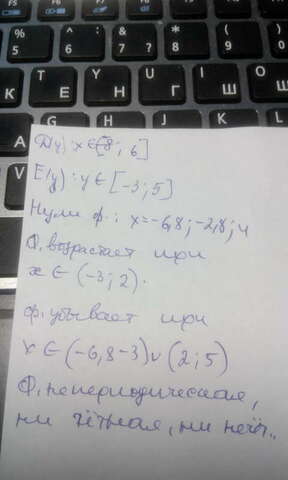 F5 F6 F7 F8 F9
% 5 ^ 6 & 7 ? * 8 ( 9
E Н Г Ш
Д(y): x ∈ [-8; 6]
E(y): y ∈ [-3; 5]
Нули ф.: x=-6,8; -2,8; 4
Ф. возрастает при
x ∈ (-3; 2).
ф. убывает при
x ∈ (-6,8-3) ∪ (2; 5)
Ф. непериодическая,
ни чётная, ни неч..